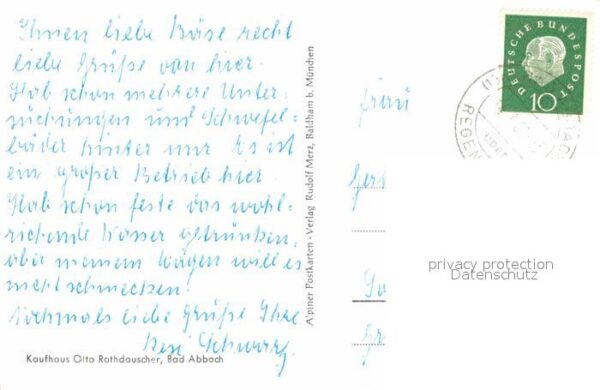 Ihnen liebe Böse recht
liebe Grüße von hier.
Hab schon mehrere Unter-
suchungen und Schwefel-
bäder hinter mir. Es ist
ein großer Betrieb hier.
Hab schon feste das wohl-
riechende Wasser getrunken,
aber meinem Magen will es
nicht schmecken.
Nochmals liebe Grüße Ihre
Resi Schwarz
Kaufhaus Otto Rothdauscher, Bad Abbach
Alpiner Postkarten - Verlag Rudolf Merz, Baldham b. München
Frau
DEUTSCHE BUNDESPOST
10
REGEN
privacy protection
Datenschutz